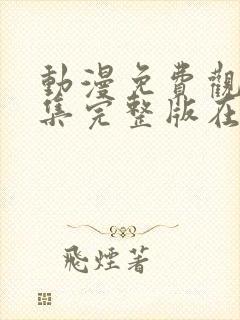 動漫免費觀
集完整版在
飛煙著